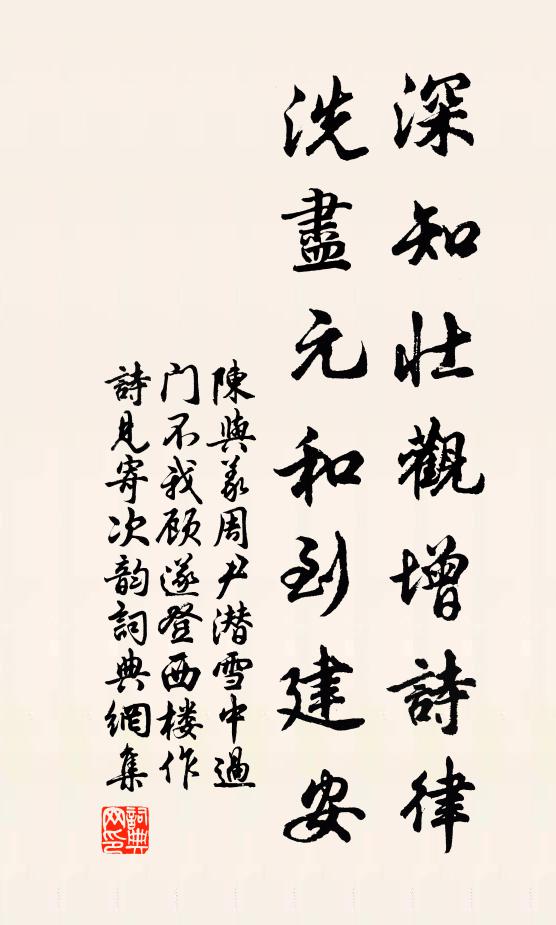 深知壯觀增詩律
洗盡元和到建安
陳與義周尹潜雪中過
门不我顾遂登西楼作
詩見寄次韵詞典網集
詞典
网印